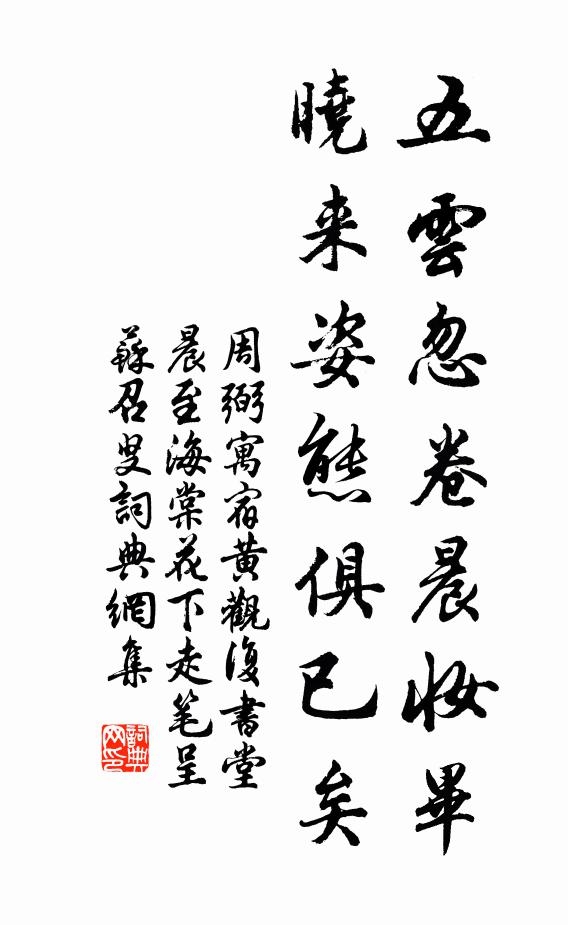 五雲忽卷晨妝畢
曉来姿態俱已矣
周弼寓宿黃觀復書堂
晨至海棠花下走笔呈
蘇召叟詞典網集
詞典網印